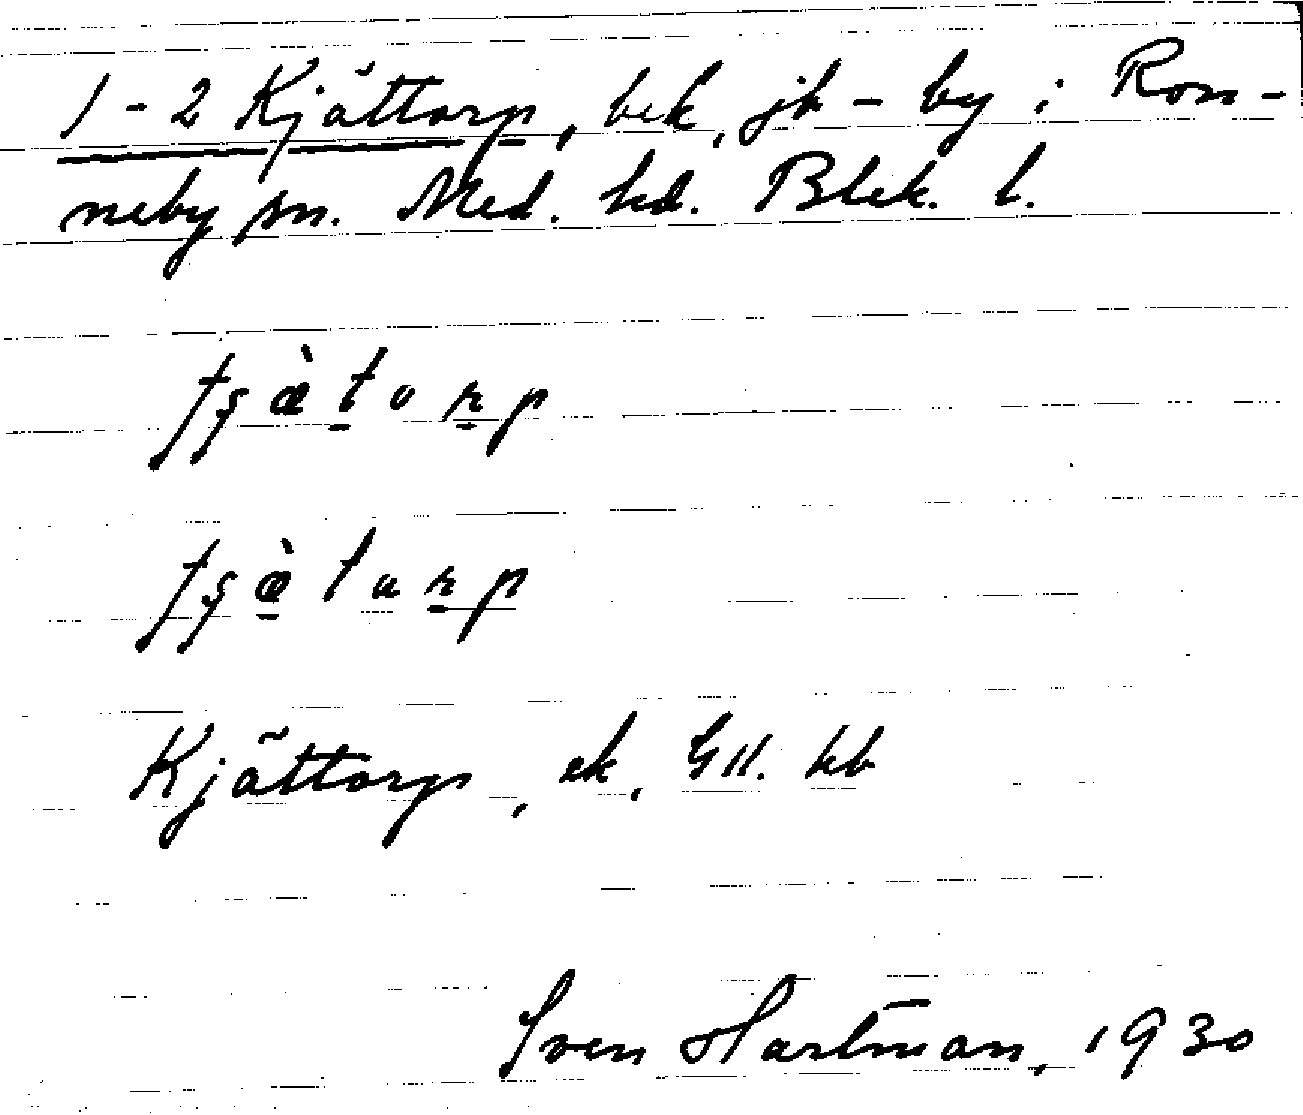 1-2 Kjättorp, bek, jb - by i Ron-
neby sn. Med. hd. Blek. l.
tʂæ̀torp
tʂæ̀tarp
Kjättorp, ek, GII. kb
Sven Hartman, 1930